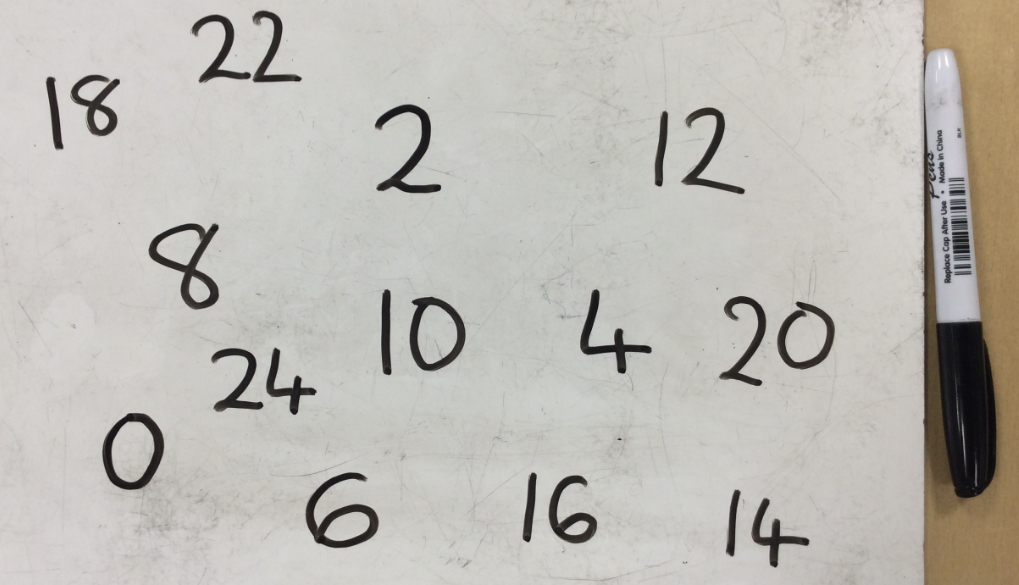 22
18
2
12
8
10
4
20
24
0
6
16
14
Pens
Replace Cap After Use • Made in China
BLK